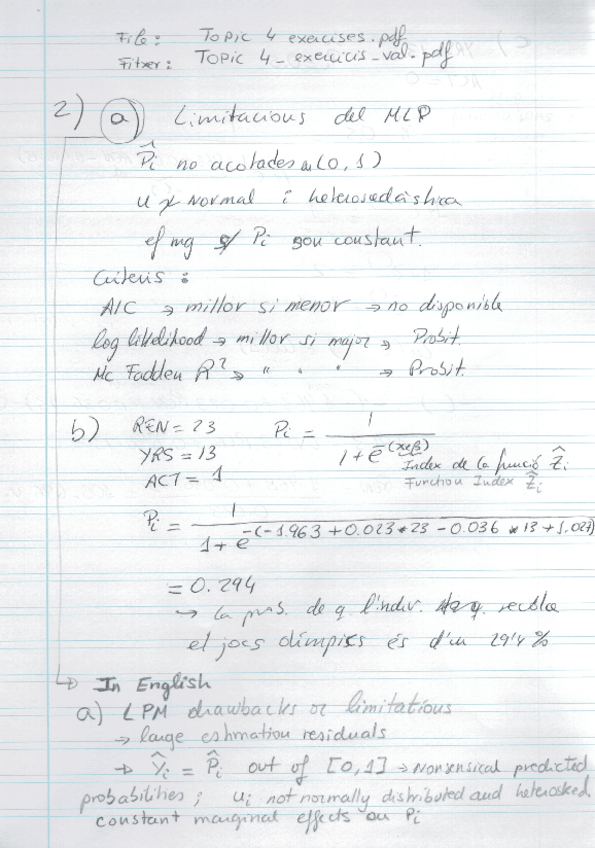 File: Topic 4 exercises.pdf
Fitxer: Topic 4_exercicis_val.pdf
2) a) Limitacions del MLP
P̂i no acotades en (0,1)
u ≁ Normal i heterosedàstica
ef mg s/ Pi son constant.
Criteris:
AIC → millor si menor → no disponible
log likelihood → millor si major → Probit.
Mc Fadden R² → " " " → Probit.
b) REN = 23 Pi = 1 / 1 + e^-(xiβ)
YRS = 13 Index de la funció Ẑi
ACT = 1 Function Index Ẑi
Pi = 1 / 1 + e^-(-1.963 + 0.023*23 - 0.036*13 + 1.027)
= 0.294
→ la prob. de q l'indiv. q. recolze
el jocs olímpics és d'un 29'4%
↳ In English
a) LPM drawbacks or limitations
→ large estimation residuals
→ Ŷi = P̂i out of [0,1] → Nonsensical predicted
probabilities; ui not normally distributed and heterosked.
constant marginal effects on Pi